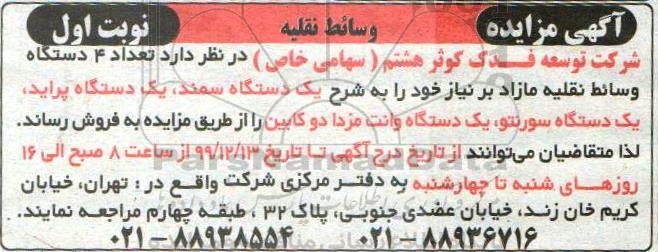 آگهی مزایده وسائط نقلیه نوبت اول
شرکت توسعه فدک کوثر هشتم ( سهامی خاص ) در نظر دارد تعداد ۴ دستگاه
وسائط نقلیه مازاد بر نیاز خود را به شرح یک دستگاه سمند، یک دستگاه پراید،
یک دستگاه سورنتو، یک دستگاه وانت مزدا دو کابین را از طریق مزایده به فروش رساند.
لذا متقاضیان می‌توانند از تاریخ درج آگهی تا تاریخ ۹۹/۱۲/۱۳ از ساعت ۸ صبح الی ۱۶
روزهای شنبه تا چهارشنبه به دفتر مرکزی شرکت واقع در : تهران، خیابان
کریم خان زند، خیابان عضدی جنوبی، پلاک ۳۲ ، طبقه چهارم مراجعه نمایند.
۰۲۱ – ۸۸۹۳۸۵۵۴ ۰۲۱ – ۸۸۹۳۶۷۱۶